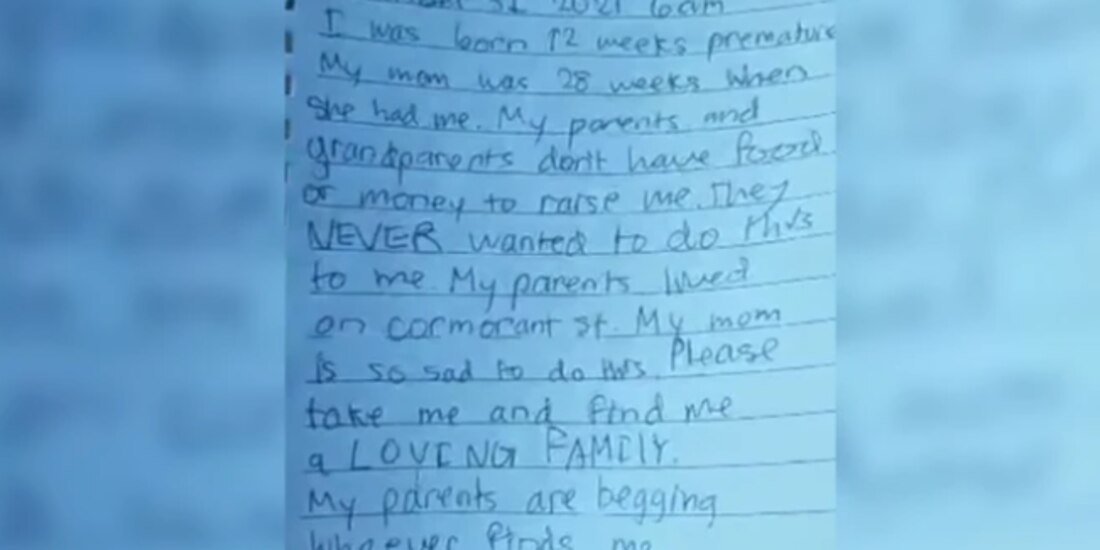 31 2021 6am
I was born 12 weeks premature
My mom was 28 weeks when
she had me. My parents and
grandparents don't have food
or money to raise me. They
NEVER wanted to do this
to me. My parents lived
on cormorant st. My mom
is so sad to do this. Please
take me and find me
a LOVING FAMILY.
My parents are begging
whoever finds me